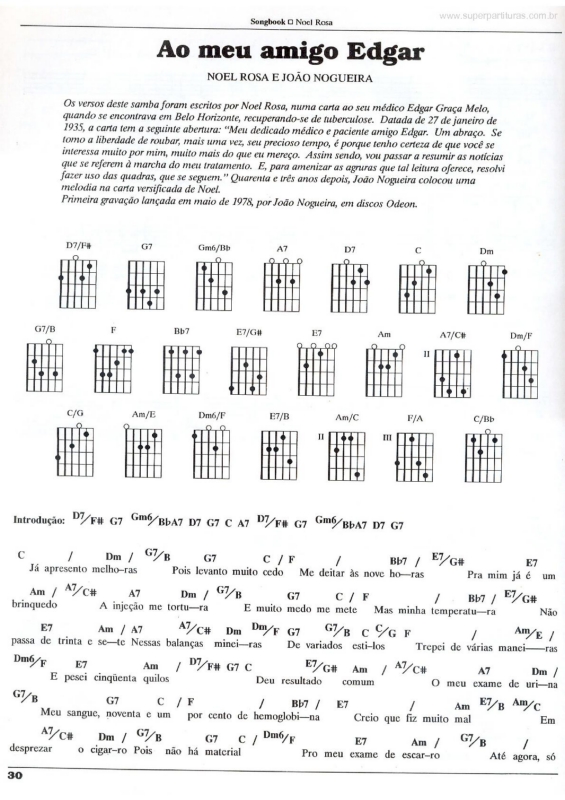 www.superpartituras.com.br
Songbook □ Noel Rosa
Ao meu amigo Edgar
NOEL ROSA E JOÃO NOGUEIRA
Os versos deste samba foram escritos por Noel Rosa, numa carta ao seu médico Edgar Graça Melo,
quando se encontrava em Belo Horizonte, recuperando-se de tuberculose. Datada de 27 de janeiro de
1935, a carta tem a seguinte abertura: “Meu dedicado médico e paciente amigo Edgar. Um abraço. Se
tomo a liberdade de roubar, mais uma vez, seu precioso tempo, é porque tenho certeza de que você se
interessa muito por mim, muito mais do que eu mereço. Assim sendo, vou passar a resumir as notícias
que se referem à marcha do meu tratamento. E, para amenizar as agruras que tal leitura oferece, resolvi
fazer uso das quadras, que se seguem.” Quarenta e três anos depois, João Nogueira colocou uma
melodia na carta versificada de Noel.
Primeira gravação lançada em maio de 1978, por João Nogueira, em discos Odeon.
D7/F# G7 Gm6/Bb A7 D7 C Dm
G7/B F Bb7 E7/G# E7 Am A7/C# Dm/F
II
C/G Am/E Dm6/F E7/B Am/C F/A C/Bb
II III
Introdução: D7/F# G7 Gm6/BbA7 D7 G7 C A7 D7/F# G7 Gm6/BbA7 D7 G7
C / Dm / G7/B G7 C / F / Bb7 / E7/G# E7
Já apresento melho-ras Pois levanto muito cedo Me deitar às nove ho-ras Pra mim já é um
Am / A7/C# A7 Dm / G7/B G7 C / F / Bb7 / E7/G#
brinquedo A injeção me tortu-ra E muito medo me mete Mas minha temperatu-ra Não
E7 Am / A7 A7/C# Dm Dm/F G7 G7/B C C/G F / Am/E /
passa de trinta e se-te Nessas balanças minei-ras De variados esti-los Trepei de várias manei-ras
Dm6/F E7 Am / D7/F# G7 C E7/G# Am / A7/C# A7 Dm /
E pesei cinqüenta quilos Deu resultado comum O meu exame de uri-na
G7/B G7 C / F / Bb7 / E7 / Am E7/B Am/C
Meu sangue, noventa e um por cento de hemoglobi-na Creio que fiz muito mal Em
A7/C# Dm / G7/B G7 C / Dm6/F E7 Am / G7/B /
desprezar o cigar-ro Pois não há material Pro meu exame de escar-ro Até agora, só
30